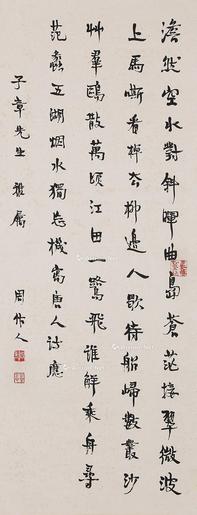 澹然空水對斜暉曲島蒼茫接翠微波
上馬嘶看櫂去柳邊人歇待船歸數叢沙
艸羣鷗散萬頃江田一鷺飛誰解乘舟尋
范蠡五湖烟水獨忘機寫唐人詩應
子章先生雅屬
周作人